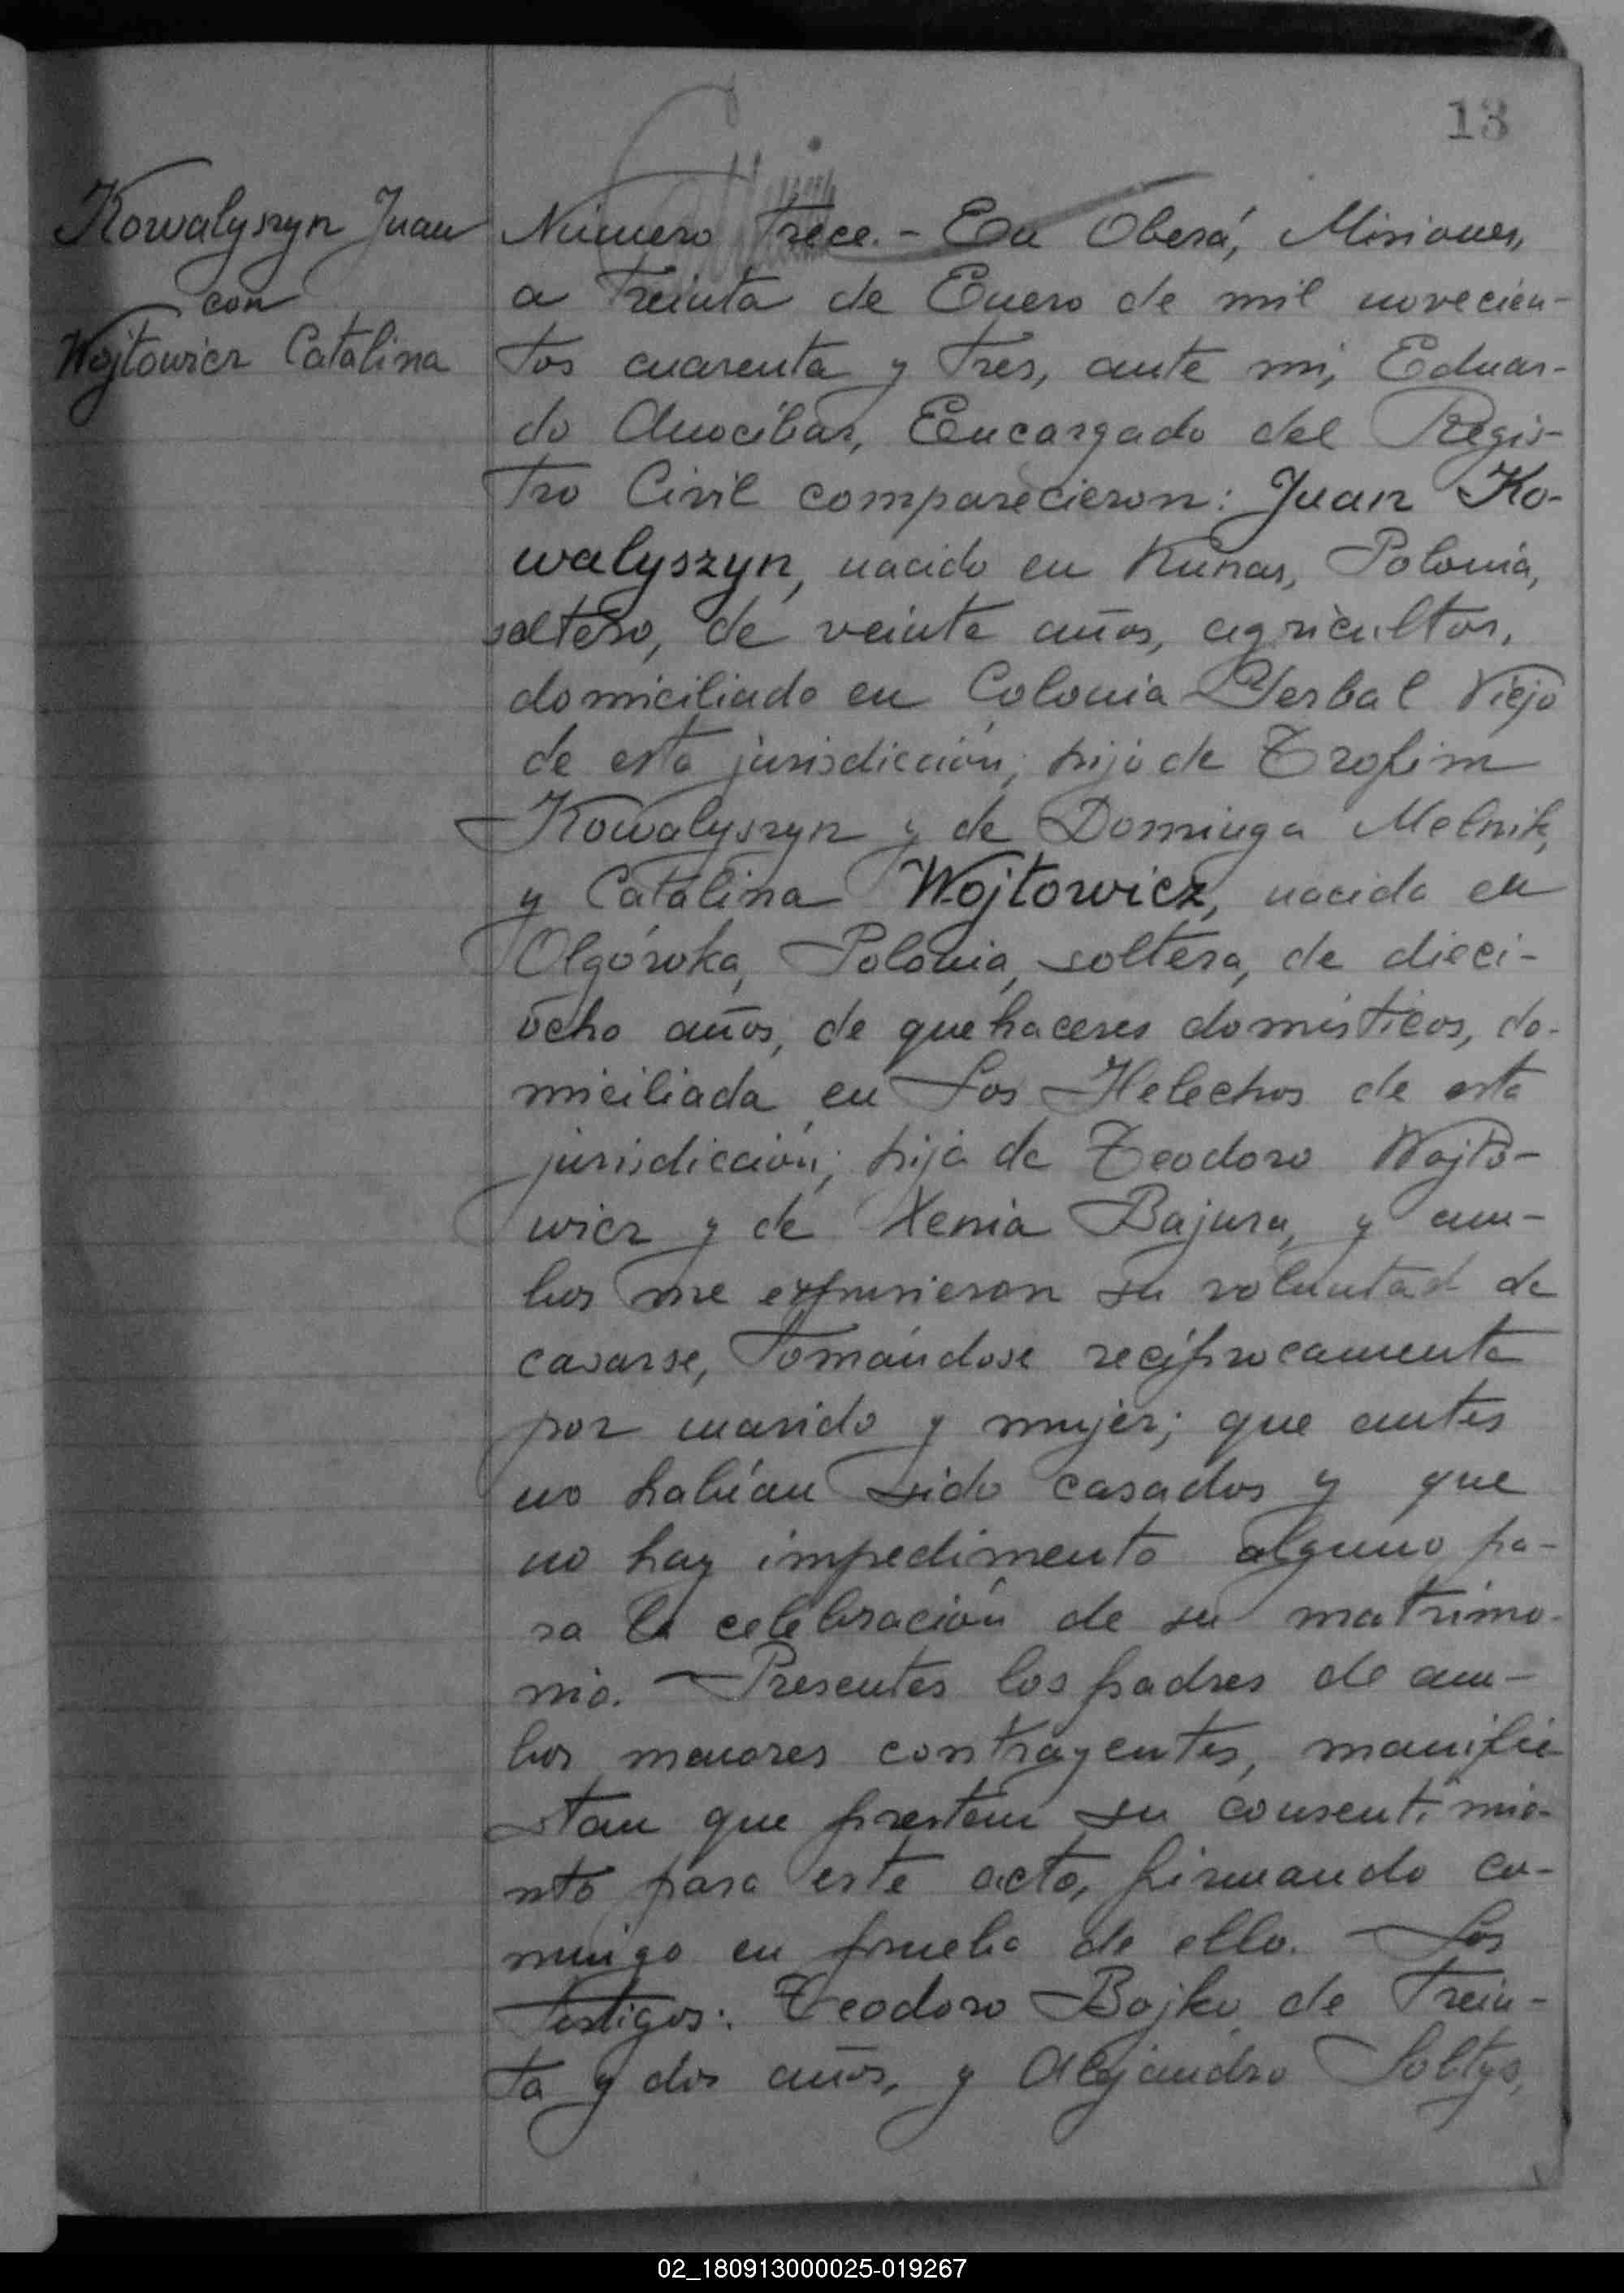 13
Kowalyszyn Juan
con
Wojtowicz Catalina
Número Trece.- En Oberá, Misiones,
a Treinta de Enero de mil novecien-
tos cuarenta y Tres, ante mi, Eduar-
do Anocíbar, Encargado del Regis-
tro Civil comparecieron: Juan Ko-
walyszyn, nacido en Kunas, Polonia,
soltero, de veinte años, agricultor,
domiciliado en Colonia Yerbal Viejo
de esta jurisdicción; hijo de Trofim
Kowalyszyn y de Dominga Melnik,
y Catalina Wojtowicz, nacida en
Olgówka, Polonia, soltera, de dieci-
ocho años, de quehaceres domésticos, do-
miciliada en Los Helechos de esta
jurisdicción; hija de Teodoro Wojto-
wicz y de Xenia Bajura, y am-
bos me expusieron su voluntad de
casarse, Tomándose recíprocamente
por marido y mujer; que antes
no habían sido casados y que
no hay impedimento alguno pa-
ra la celebración de su matrimo-
nio. Presentes los padres de am-
bos menores contrayentes, manifie-
stan que prestan su consentimie-
nto para este acto, firmando co-
nmigo en prueba de ello. Los
Testigos: Teodoro Bojko de Trein-
ta y dos años, y Alejandro Soltys,
02_180913000025-019267